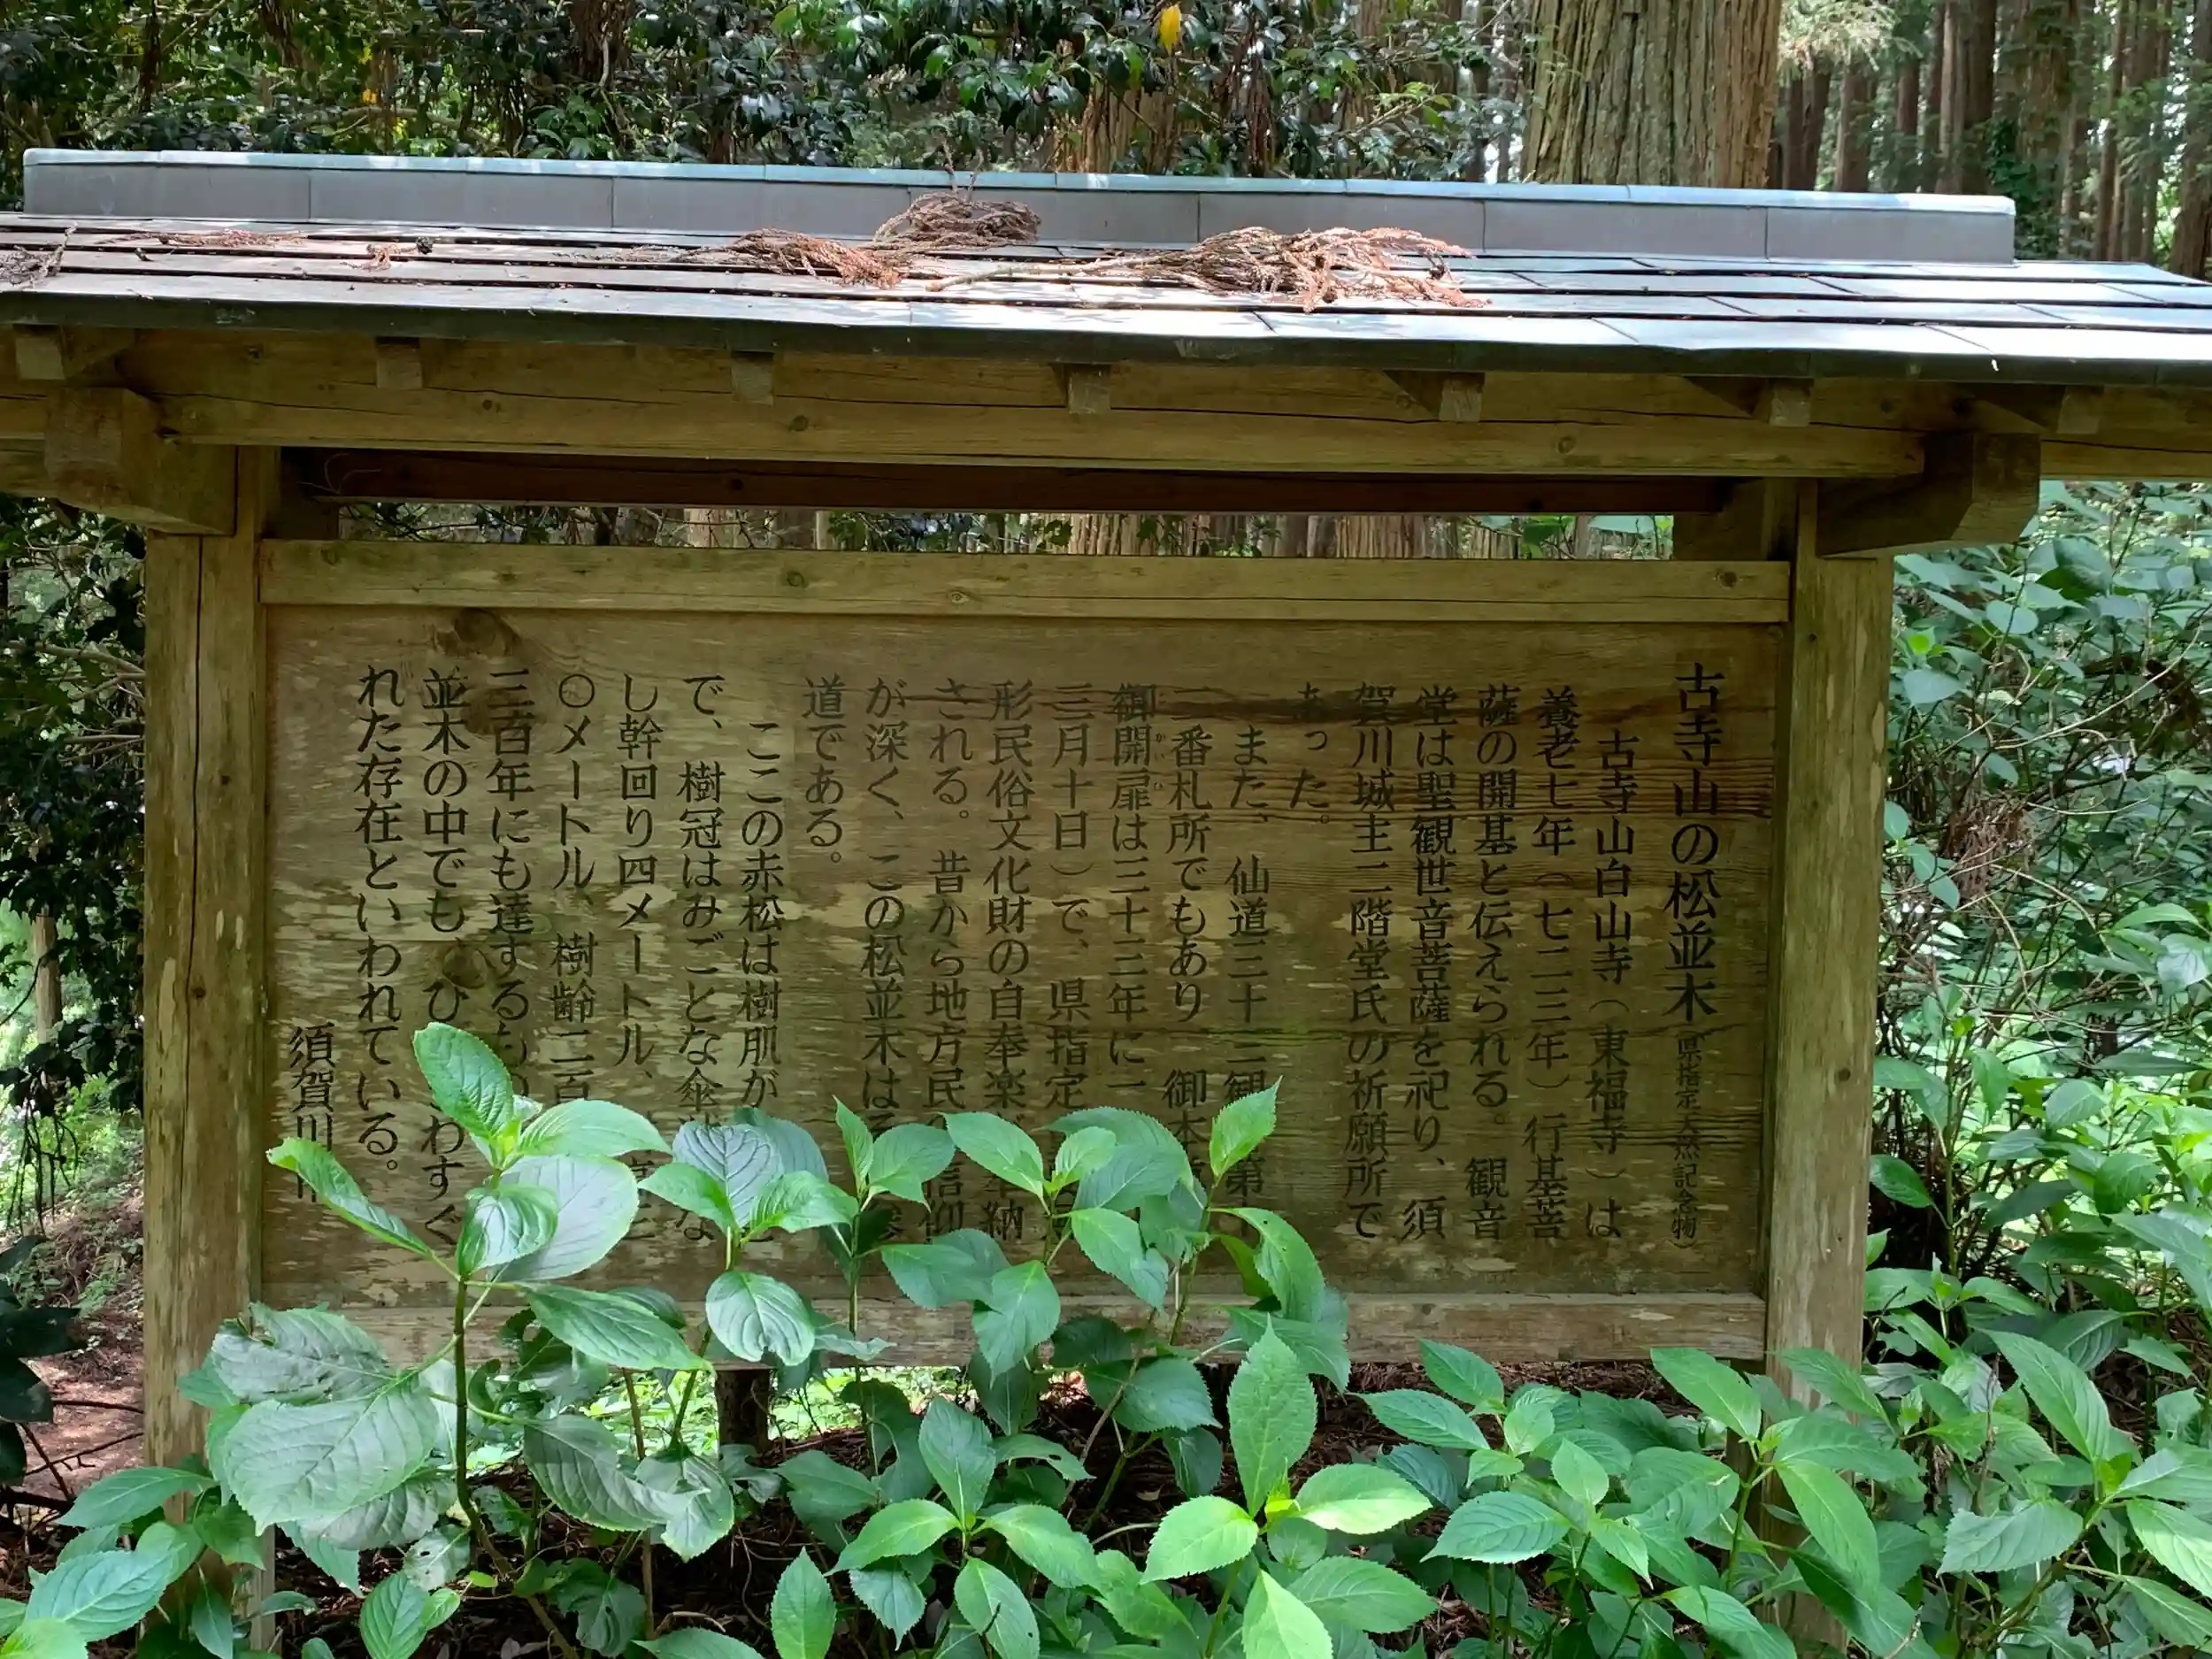 古寺山の松並木(県指定天然記念物)
古寺山白山寺(東福寺)は
養老七年(七二三年)行基菩
薩の開基と伝えられる。観音
堂は聖観世音菩薩を祀り、須
賀川城主二階堂氏の祈願所で
あった。
また、仙道三十三観 第
二番札所でもあり 御本
御開扉は三十三年に一
三月十日)で、県指定
形民俗文化財の自奉楽 奉納
される。昔から地方民 信仰
が深く、この松並木は
道である。
ここの赤松は樹肌が
で、樹冠はみごとな傘 な
し幹回り四メートル、
〇メートル、樹齢二百
三百年にも達するもの
並木の中でも、ひ わすぐ
れた存在といわれている。
須賀川市